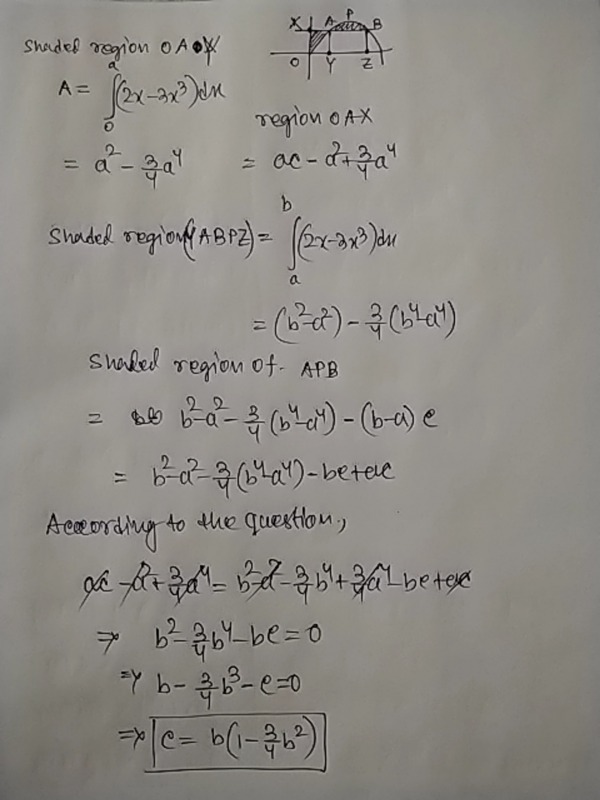 Shaded region OAY
X A P B
O Y Z
A = ∫₀ᵃ (2x-3x³)dx
region OAX
= a² - 3/4 a⁴ = ac - a² + 3/4 a⁴
Shaded region (YABPZ) = ∫ₐᵇ (2x-3x³)dx
= (b²-a²) - 3/4 (b⁴-a⁴)
Shaded region of APB
= b²-a² - 3/4 (b⁴-a⁴) - (b-a) c
= b²-a² - 3/4 (b⁴-a⁴) - bc+ac
According to the question,
ac - a² + 3/4 a⁴ = b²-a² - 3/4 b⁴ + 3/4 a⁴ - bc+ac
⇒ b² - 3/4 b⁴ - bc = 0
⇒ b - 3/4 b³ - c = 0
⇒ c = b(1 - 3/4 b²)